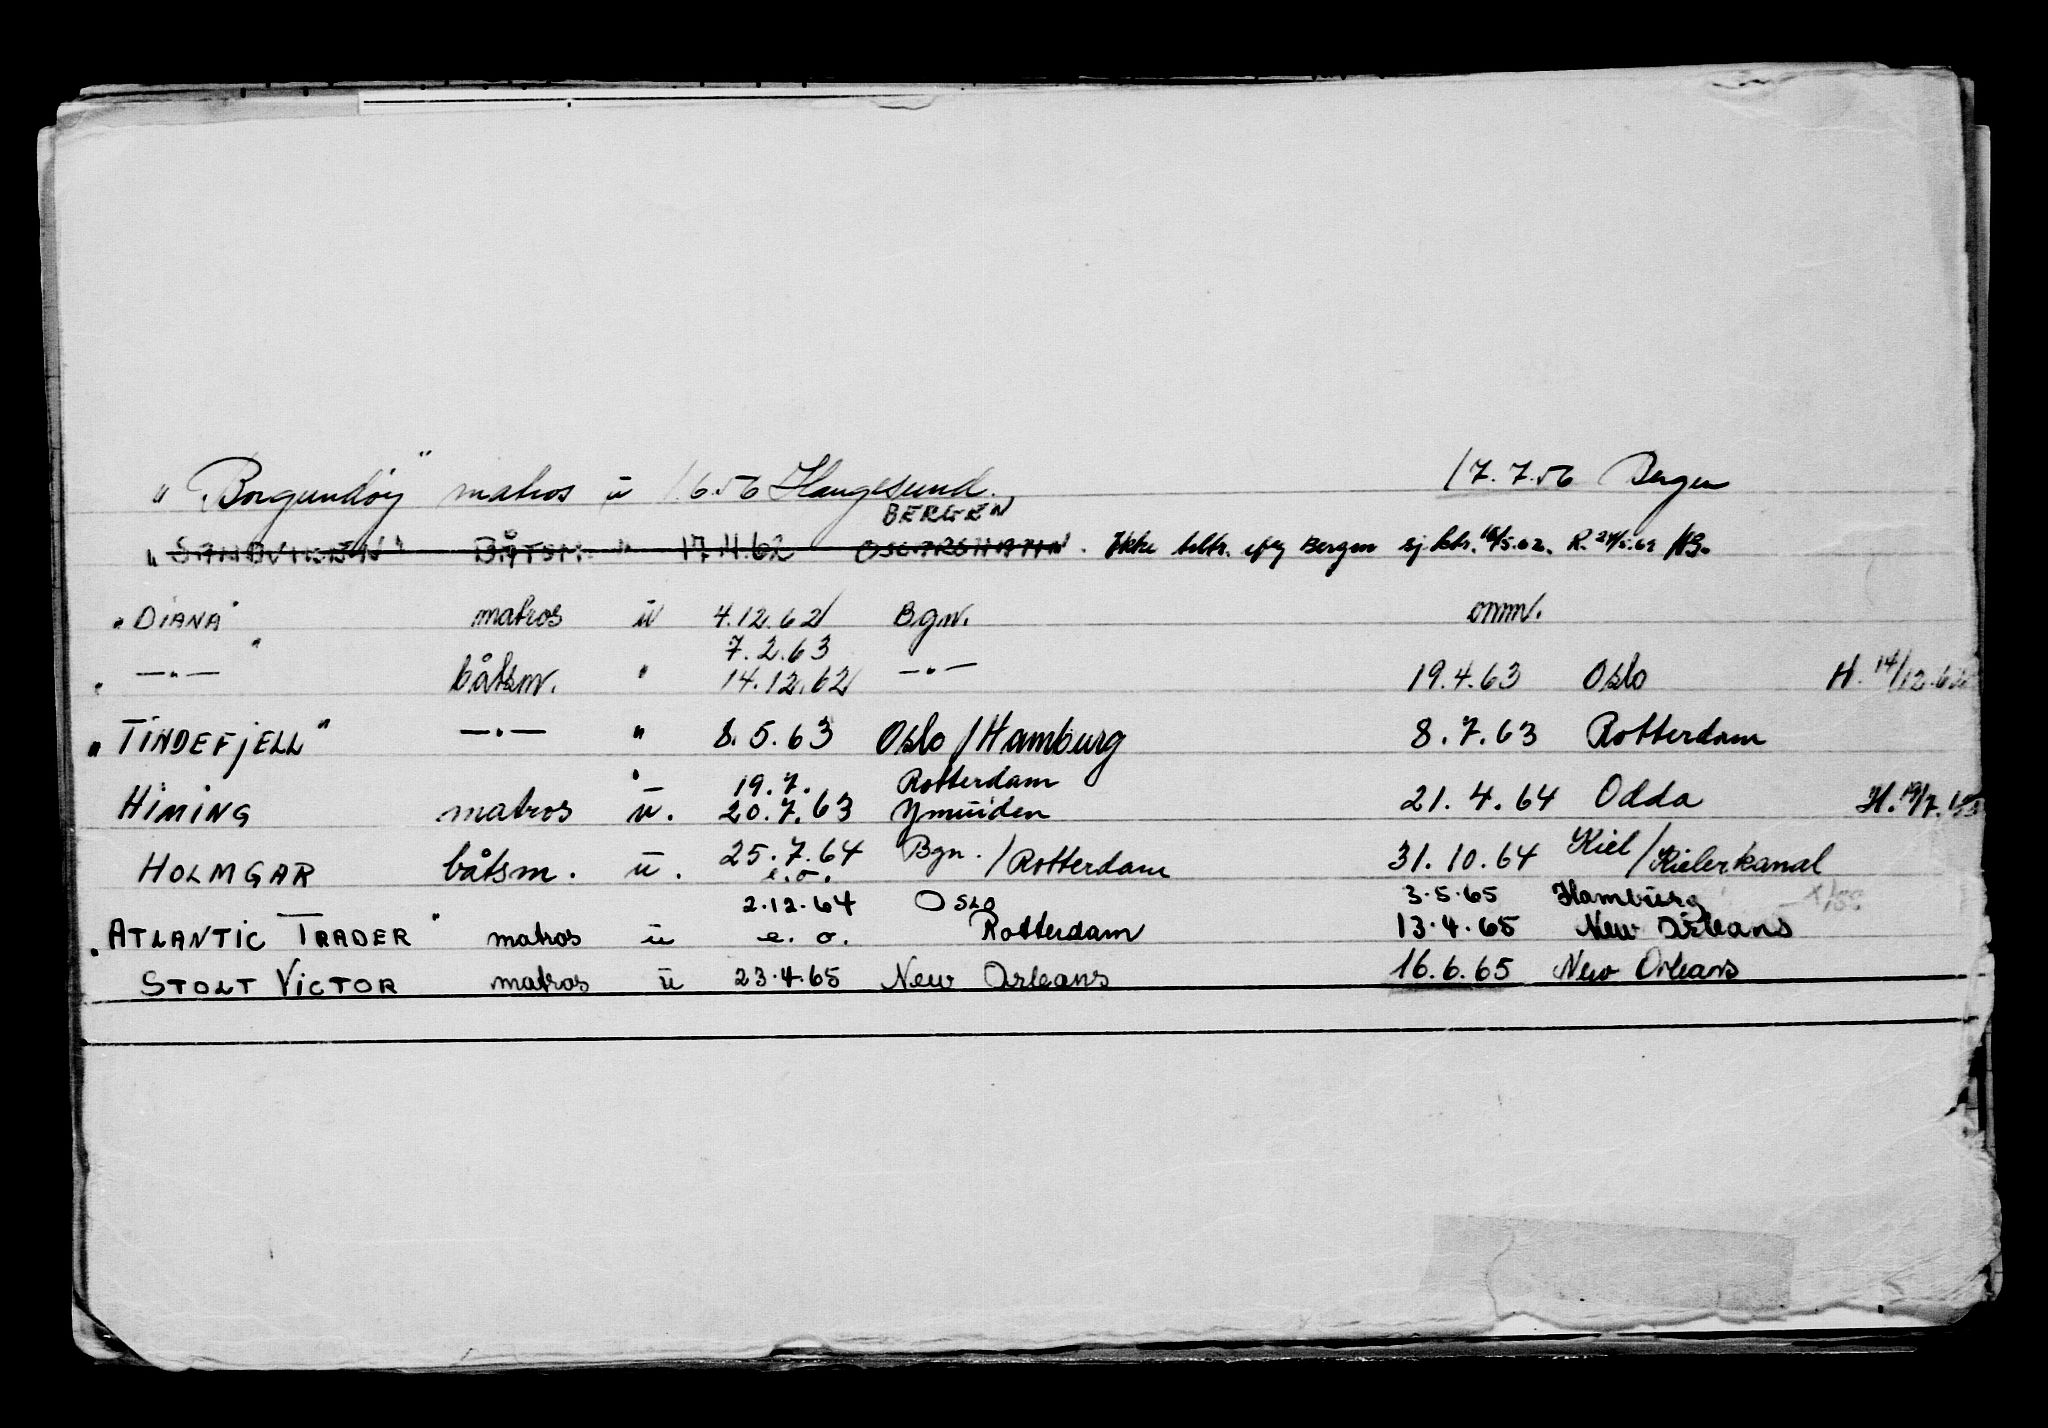 " Borgundøy" matros u 1.6.56 Haugesund. 17.7.56 Bergen
BERGEN
" SANDVIKEN" BÅTSM. " 17.4.62 OSCARSHAMN. Ikke tiltr. Bergen sj.ktr. 18/5.62. R. 24/5.62
"DIANA" matros u 4.12.62 Bgn. omm.
7.2.63
" —"— " båtsm. " 14.12.62 —"— 19.4.63 Oslo H. 14/12.62
" TINDEFJELL" —"— " 8.5.63 Oslo/Hamburg 8.7.63 Rotterdam
" 19.7. Rotterdam
HIMING matros u. 20.7.63 Ymuiden 21.4.64 Odda H. 19/7.63
HOLMGAR båtsm. u. 25.7.64 Bgn./Rotterdam 31.10.64 Kiel/Kielerkanal
e.o.
2.12.64 OSLO 3.5.65 Hamburg
"ATLANTIC TRADER" matros u e.o. Rotterdam 13.4.65 New Orleans
STOLT VICTOR matros u 23.4.65 New Orleans 16.6.65 New Orleans